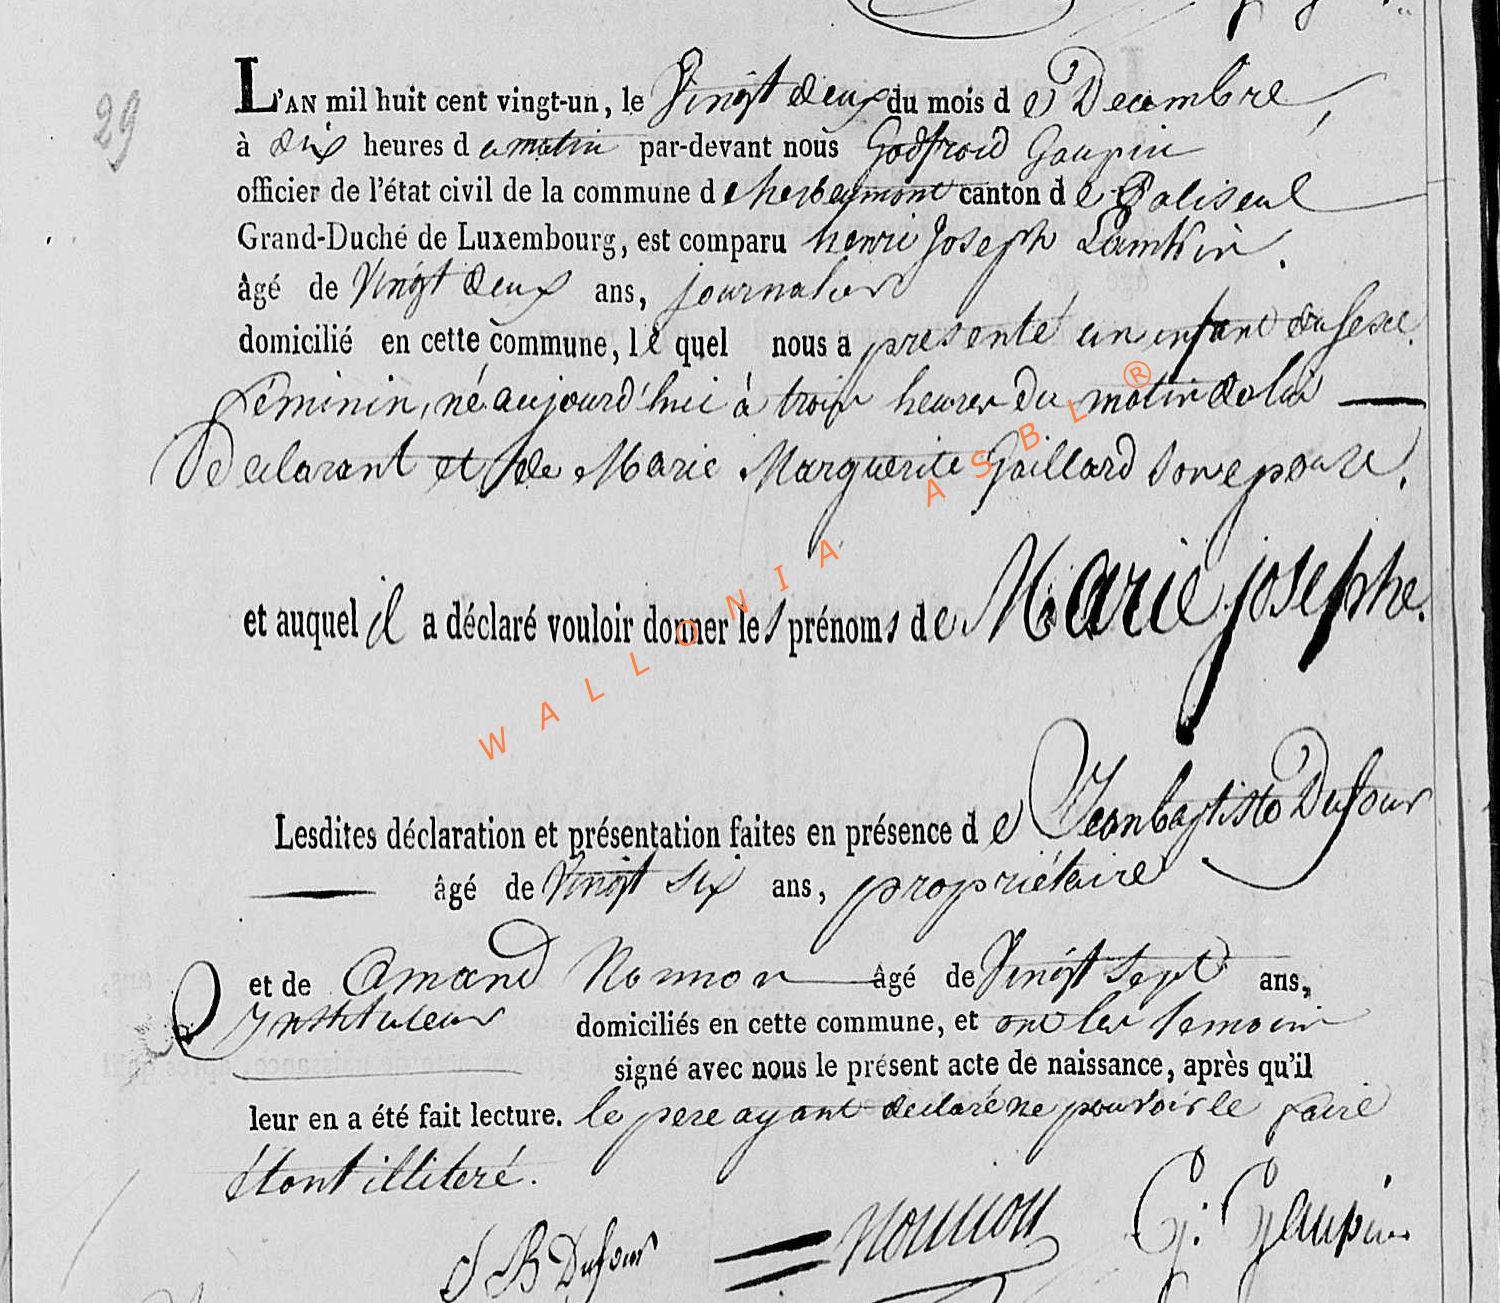 29
L'AN mil huit cent vingt-un, le Vingt deux du mois de Decembre,
à dix heures du matin par-devant nous Godfroid Gaupin
officier de l'état civil de la commune de herbeumont canton de Paliseul
Grand-Duché de Luxembourg, est comparu henri Joseph Lamkin.
âgé de Vingt deux ans, journalier
domicilié en cette commune, lequel nous a presenté un enfant du sexe
féminin, né aujourd'hui à trois heures du matin de lui
Declarant et de Marie Marguerite Gaillard son epouse.
et auquel il a déclaré vouloir donner les prénoms de Marie josephe.
Lesdites déclaration et présentation faites en présence de Jean baptiste Dufour
âgé de Vingt six ans, propriétaire
et de Amand Nonnon âgé de Vingt sept ans,
Instituteur domiciliés en cette commune, et ont les temoins
signé avec nous le présent acte de naissance, après qu'il
leur en a été fait lecture. le pere ayant declaré ne pouvoir le faire
étant illiteré.
J B Dufour Nonnon G. Gaupin
WALLONIA ASBL ®